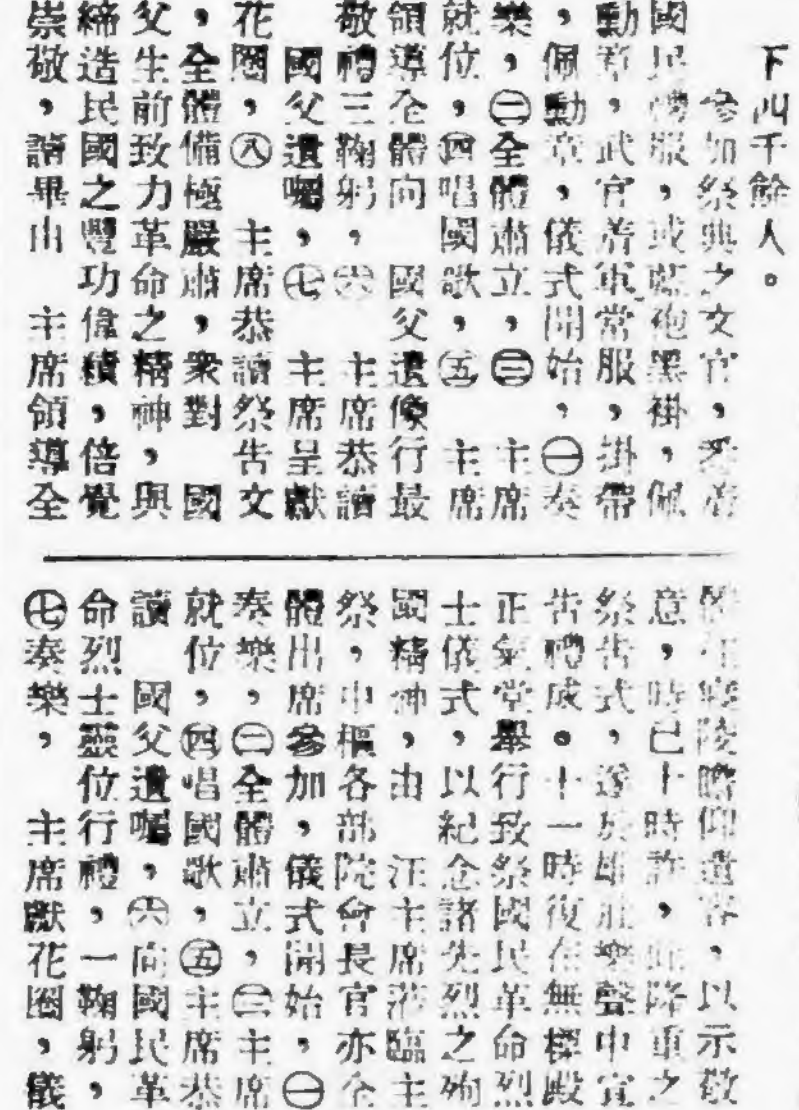 下四千餘人。
參加祭典之文官，悉着
國民禮服，或藍袍黑褂，佩
勳章，武官着軍常服，掛帶
，佩勳章，儀式開始，㊀奏
樂，㊁全體肅立，㊂　主席
就位，㊃唱國歌，㊄　主席
領導全體向　國父遺像行最
敬禮三鞠躬，㊅　主席恭讀
國父遺囑，㊆　主席呈獻
花圈，㊇　主席恭讀祭告文
，全體備極嚴肅，衆對　國
父生前致力革命之精神，與
締造民國之豐功偉績，倍覺
崇敬，讀畢由　主席領導全
體在寢陵瞻仰遺容，以示敬
意，時已十時許，此隆重之
祭告式，遂於雄壯樂聲中宣
告禮成。十一時復在無樑殿
正氣堂舉行致祭國民革命烈
士儀式，以紀念諸先烈之殉
國精神，由　汪主席蒞臨主
祭，中樞各部院會長官亦全
體出席參加，儀式開始，㊀
奏樂，㊁全體肅立，㊂主席
就位，㊃唱國歌，㊄主席恭
讀　國父遺囑，㊅向國民革
命烈士靈位行禮，一鞠躬，
㊆奏樂，　主席獻花圈，儀